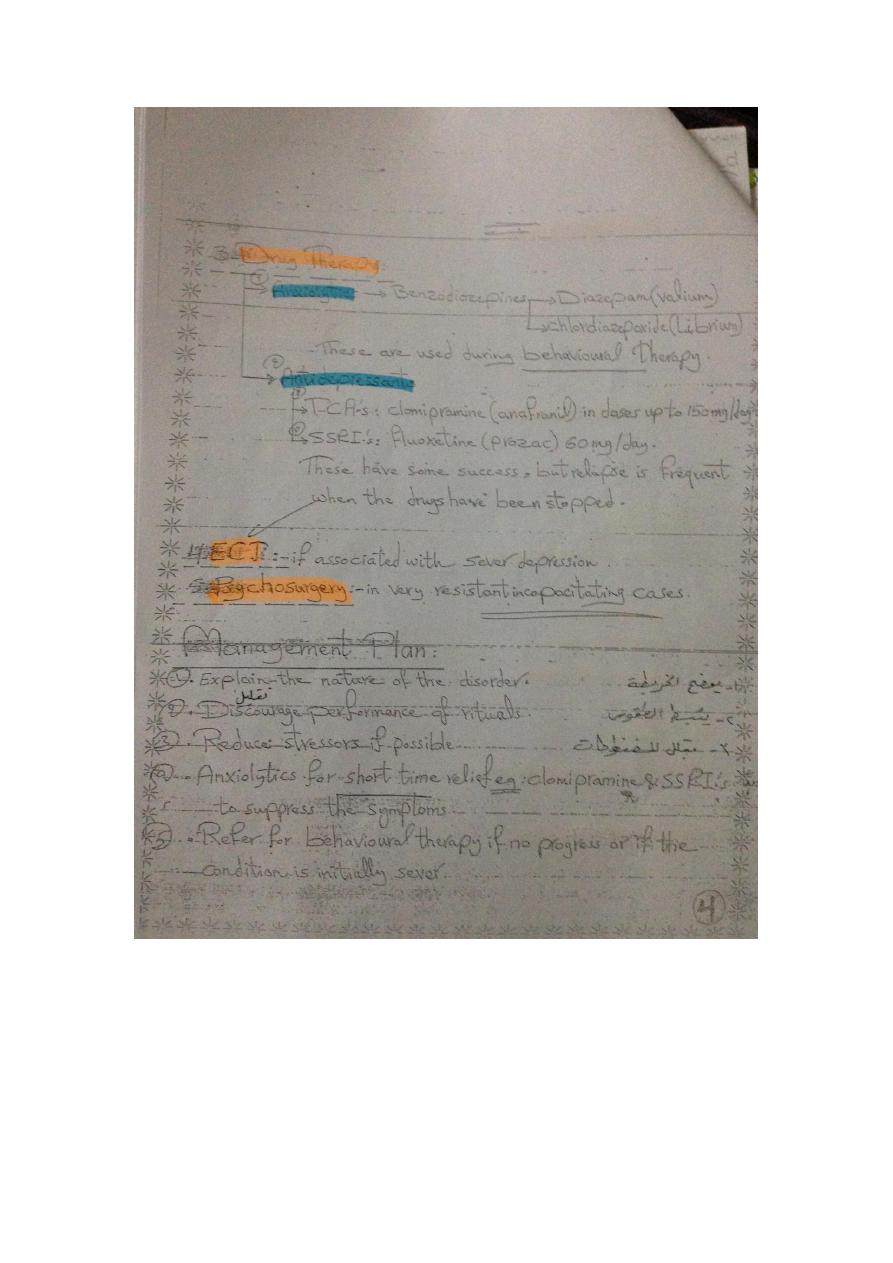 3- Drug Therapy:
① Anxiolytic → Benzodiazepines → Diazepam (Valium)
→ chlordiazepoxide (Librium)
- These are used during behavioural Therapy.
② Antidepressant
① → TCA's: clomipramine (anafranil) in doses up to 150 mg/day
② → SSRI's: fluoxetine (prozac) 60 mg/day.
These have some success, but relapse is frequent
when the drugs have been stopped.
4- ECT :- if associated with sever depression.
5- Psychosurgery :- in very resistant incapacitating cases.
Management Plan:
①. Explain the nature of the disorder.
تقليل
②. Discourage performance of rituals.
٢- يثبط الطقوس
③. Reduce stressors if possible
٣- يقلل الضغوطات
④. Anxiolytics for short time relief eg: clomipramine & SSRI's
to suppress the symptoms
⑤. Refer for behavioural therapy if no progress or if the
condition is initially sever.
4